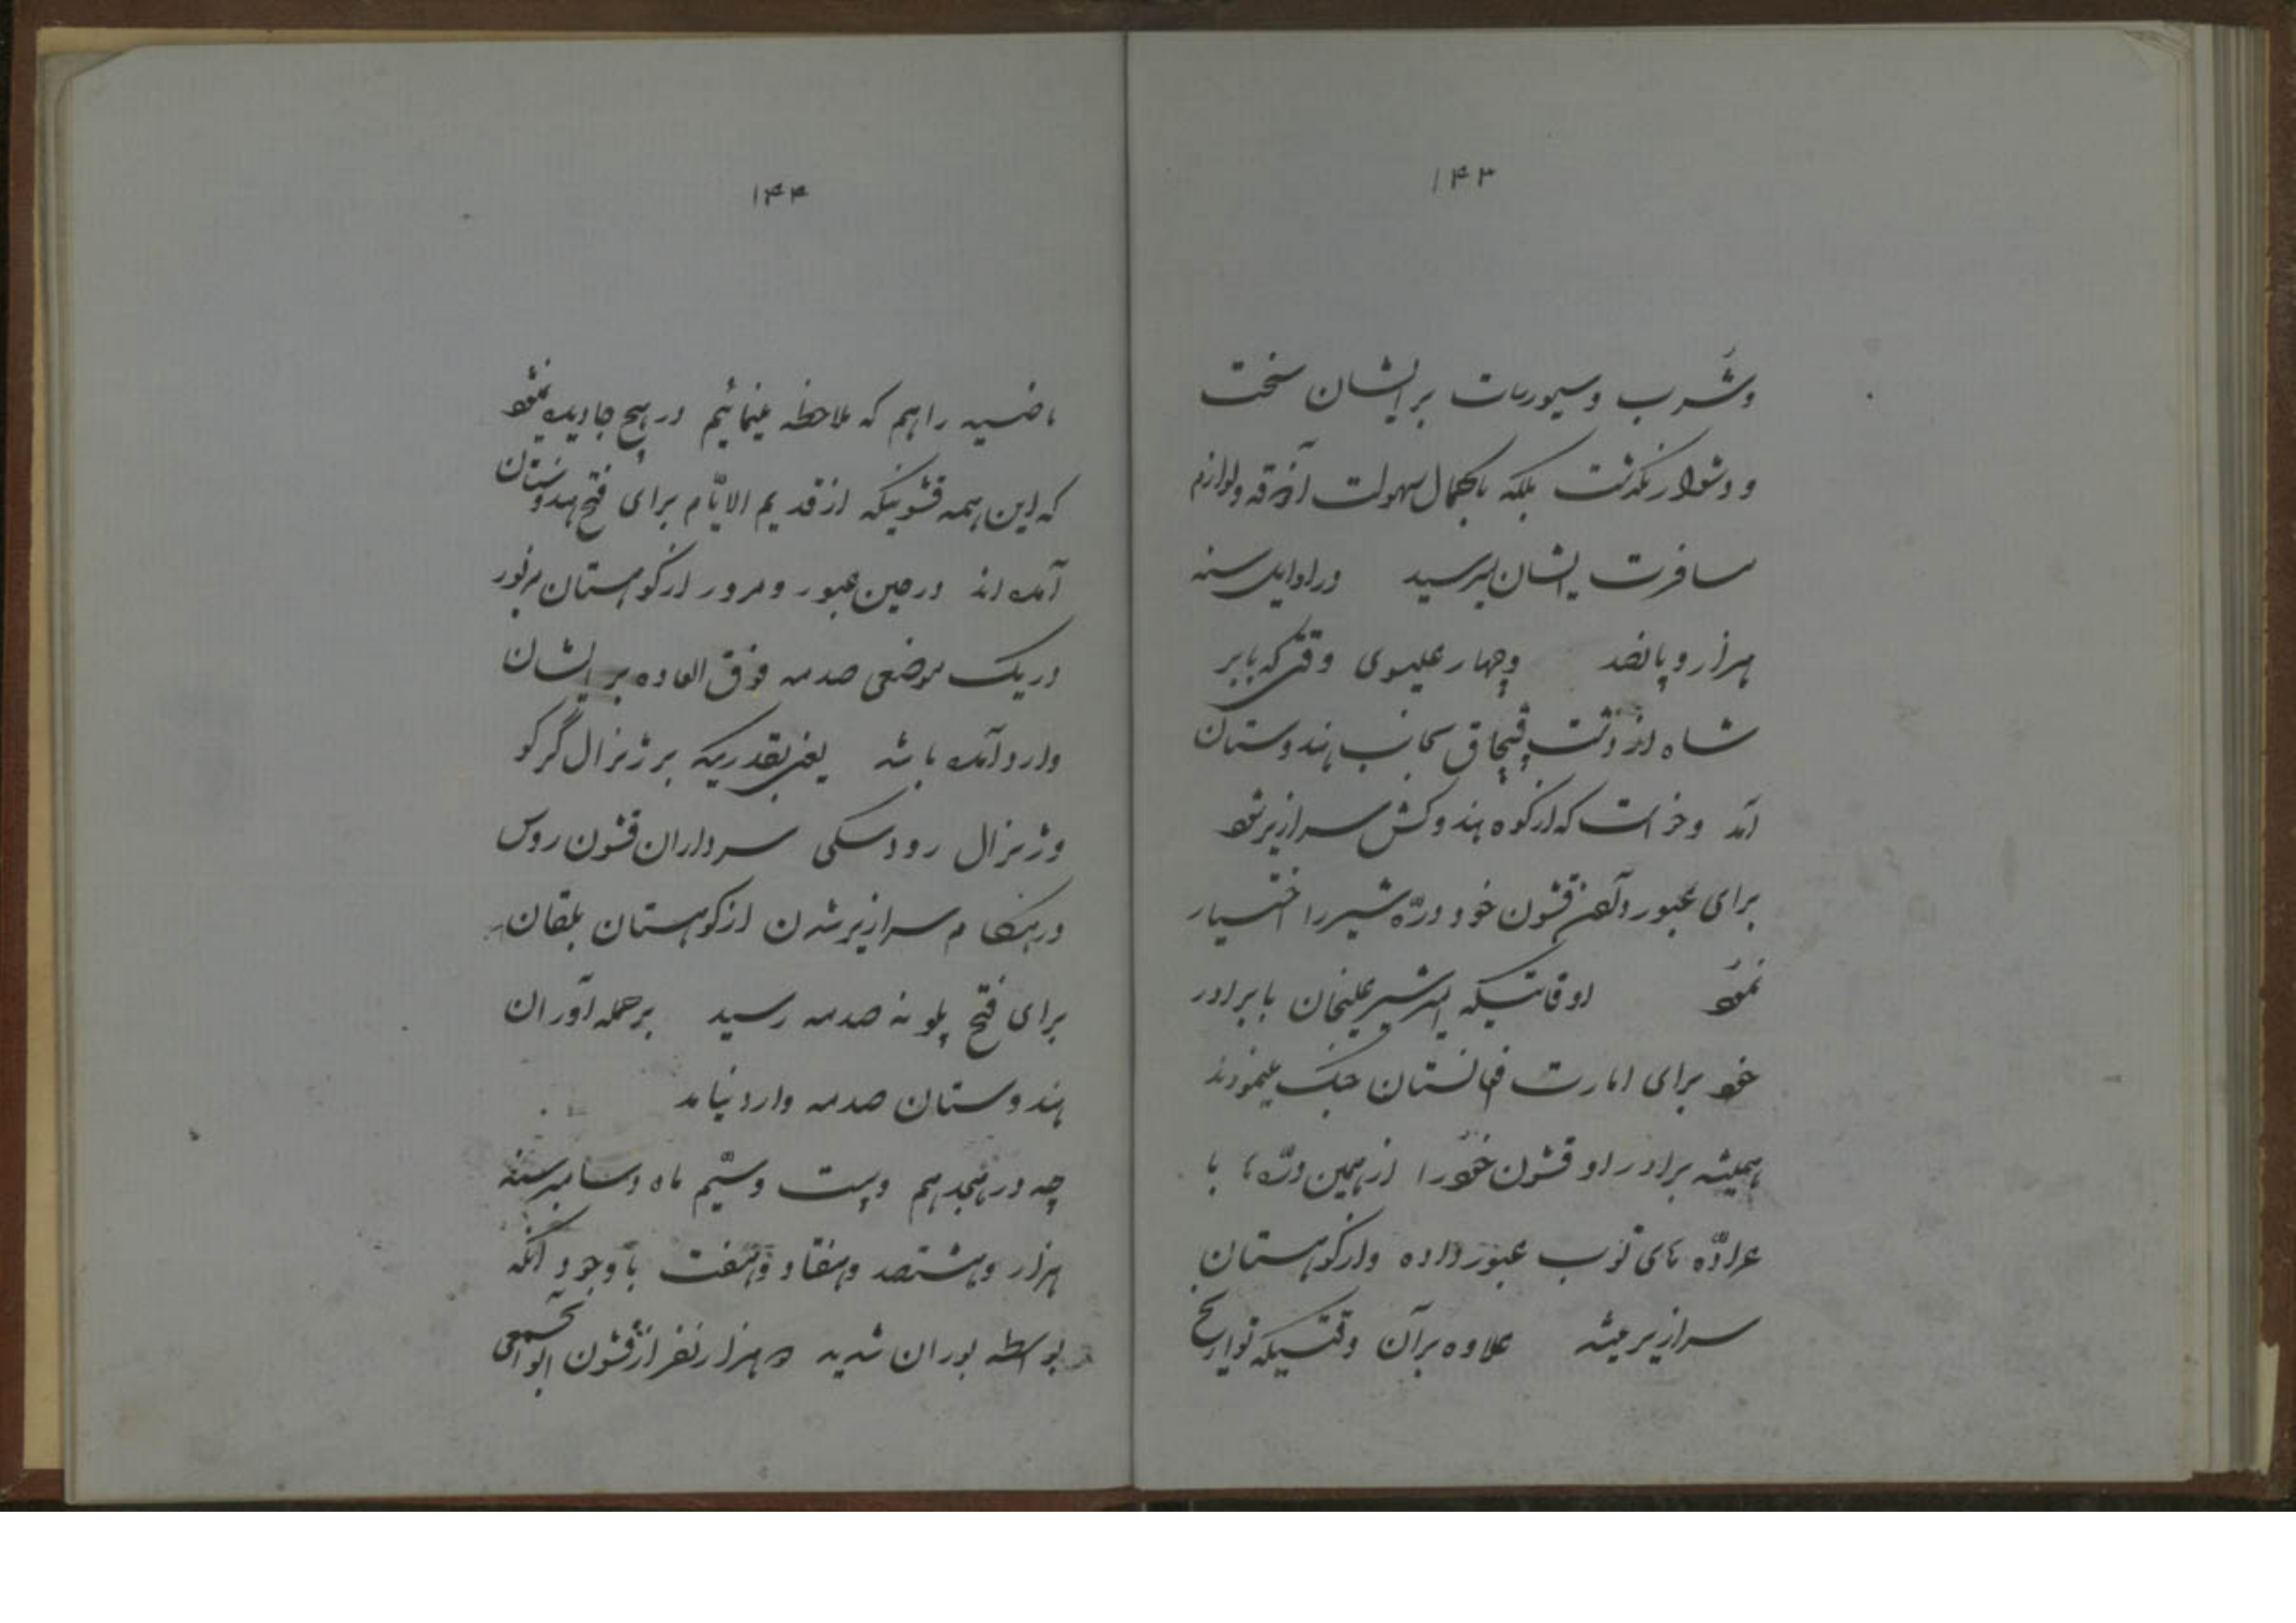 ۱۴۳
و شرب و سیورسات بر ایشان سخت
و دشوار نگذشت بلکه بکمال سهولت آذوقه و لوازم
مسافرت بایشان میرسید در اوایل سنه
هزار و پانصد و چهار عیسوی وقتی که بابر
شاه از دشت قپچاق بجانب هندوستان
آمد و خواست که از کوه هندوکش سرازیر شود
برای عبور دادن قشون خود درّه شیبر را اختیار
نمود اوقاتیکه امیر شیرعلیخان با برادر
خود برای امارت افغانستان جنگ مینمودند
همیشه برادر او قشون خود را از همین درّه‌ها با
عرادّه های توپ عبور داده و از کوهستان
سرازیر میشد علاوه بر آن وقتیکه تواریخ
۱۴۴
ماضیه را هم که ملاحظه مینمائیم در هیچ جا دیده نمیشود
که این همه قشونیکه از قدیم الایّام برای فتح هندوستان
آمده‌اند در حین عبور و مرور از کوهستان مزبور
در یک موضعی صدمه فوق العاده بر ایشان
وارد آمده باشد یعنی بقدریکه بر ژنرال گرکو
و ژنرال رودسکی سرداران قشون روس
در هنگام سرازیر شدن از کوهستان بلقان
برای فتح پلونه صدمه رسید بر حمله آوران
هندوستان صدمه وارد نیامد
چه در هیجدهم و بیست و سیّم ماه دسامبر سنه
هزار و هشتصد و هفتاد و هفت با وجود آنکه
بواسطه بوران شدید ده هزار نفر از قشون ابوابجمعی